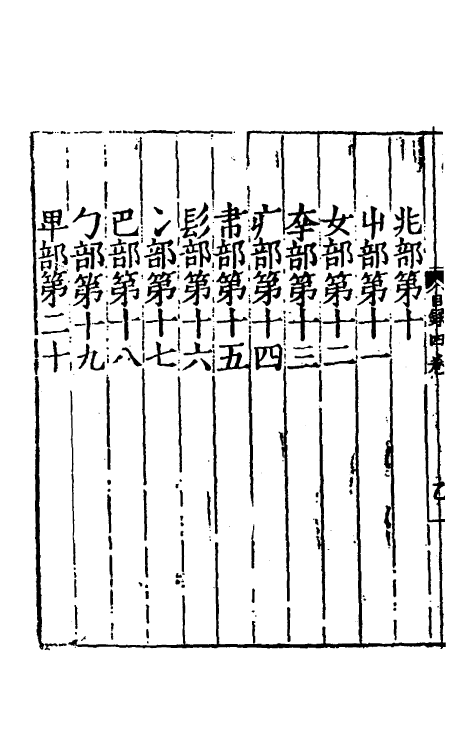 兆部第十
屮部第十一
女部第十二
部第十三
疒部第十四
帇部第十五
髟部第十六
冫部第十七
巴部第十八
勹部第十九
卑部第二十
目録四卷